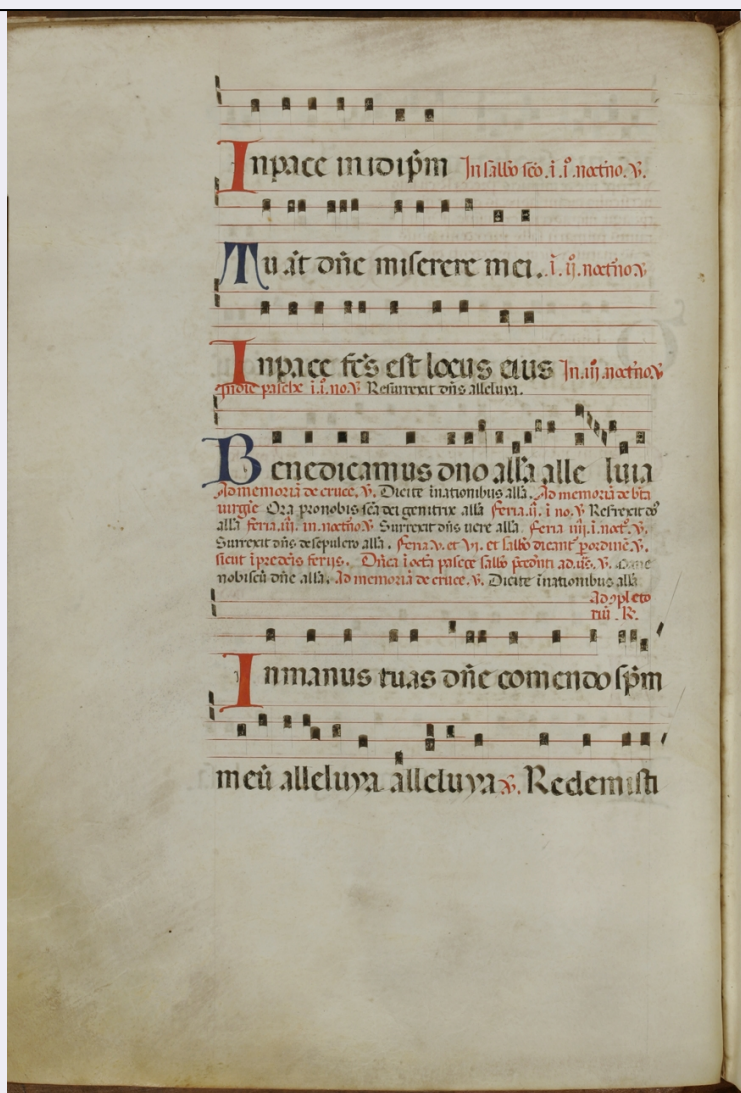 In pace in idip̄m In sabb̄o sc̄o .i. i.º noct̄no. ℣.
Tu aūt dn̄e miserere mei. .i. ij.º noct̄no ℣
In pace fc̄s est locus eius In .iij. noct̄no. ℣
In die pasche .i. i.º no. ℣ Resurrexit dn̄s alleluya.
Benedicamus dn̄o all̄a alle luia
Ad memoriā de cruce. ℣. Dicite ī nationibus all̄a. Ad memoriā de bt̄a
uirgīe Ora pro nobis sc̄a dei genitrix all̄a feria .ij. i no. ℣ Resrexit dn̄s
all̄a feria .iij. in. noct̄no ℣ Surrexit dn̄s uere all̄a feria iiij. i. noct̄. ℣.
Surrexit dn̄s de sepulcro all̄a. feria v. et vi. et sabb̄o dicant̄ p̄ ordinē ℣.
sicut ī p̄cedētis ferijs. Dn̄ica ī octā pasce sabb̄o ad. us̄. ℣. Mane
nobiscū dn̄e all̄a. Ad memoriā de cruce. ℣. Dicite ī nationibus all̄a
Ad ꝯpleto
riū. ℟.
In manus tuas dn̄e comendo sp̄m
meū alleluya alleluya ℣. Redemisti